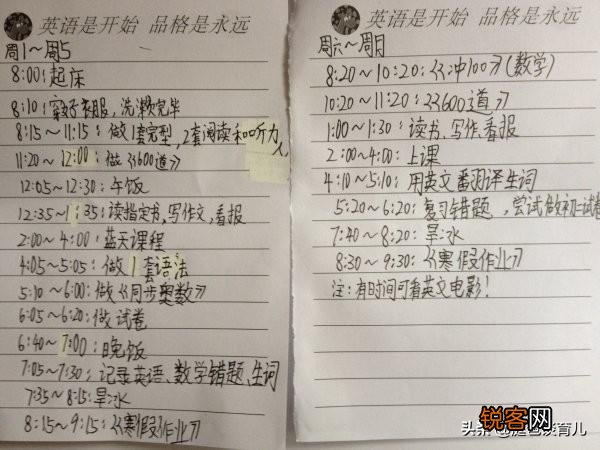 英语是开始 品格是永远
周1～周5
8:00:起床
8:10:穿好衣服,洗漱完毕
8:15～11:15:做1套完型,2套阅读和听力
11:20～12:00:做《600道》
12:05～12:30:午饭
12:35～1:35:读指定书,写作文,看报
2:00～4:00:蓝天课程
4:05～5:05:做1套语法
5:10～6:00:做《同步奥数》
6:05～6:20:做试卷
6:40～7:00:晚饭
7:05～7:30:记录英语、数学错题、生词
7:35～8:15:
8:15～9:15:《寒假作业》
英语是开始 品格是永远
周六～周日
8:20～10:20:《冲100》(数学)
10:20～11:20:《600道》
1:00～1:30:读书、写作、看报
2:00～4:00:上课
4:10～5:10:用英文翻译生词
5:20～6:20:复习错题,尝试做初一试卷
7:40～8:20:
8:30～9:30:《寒假作业》
注:有时间可看英文电影!
锐客网
头条
育儿